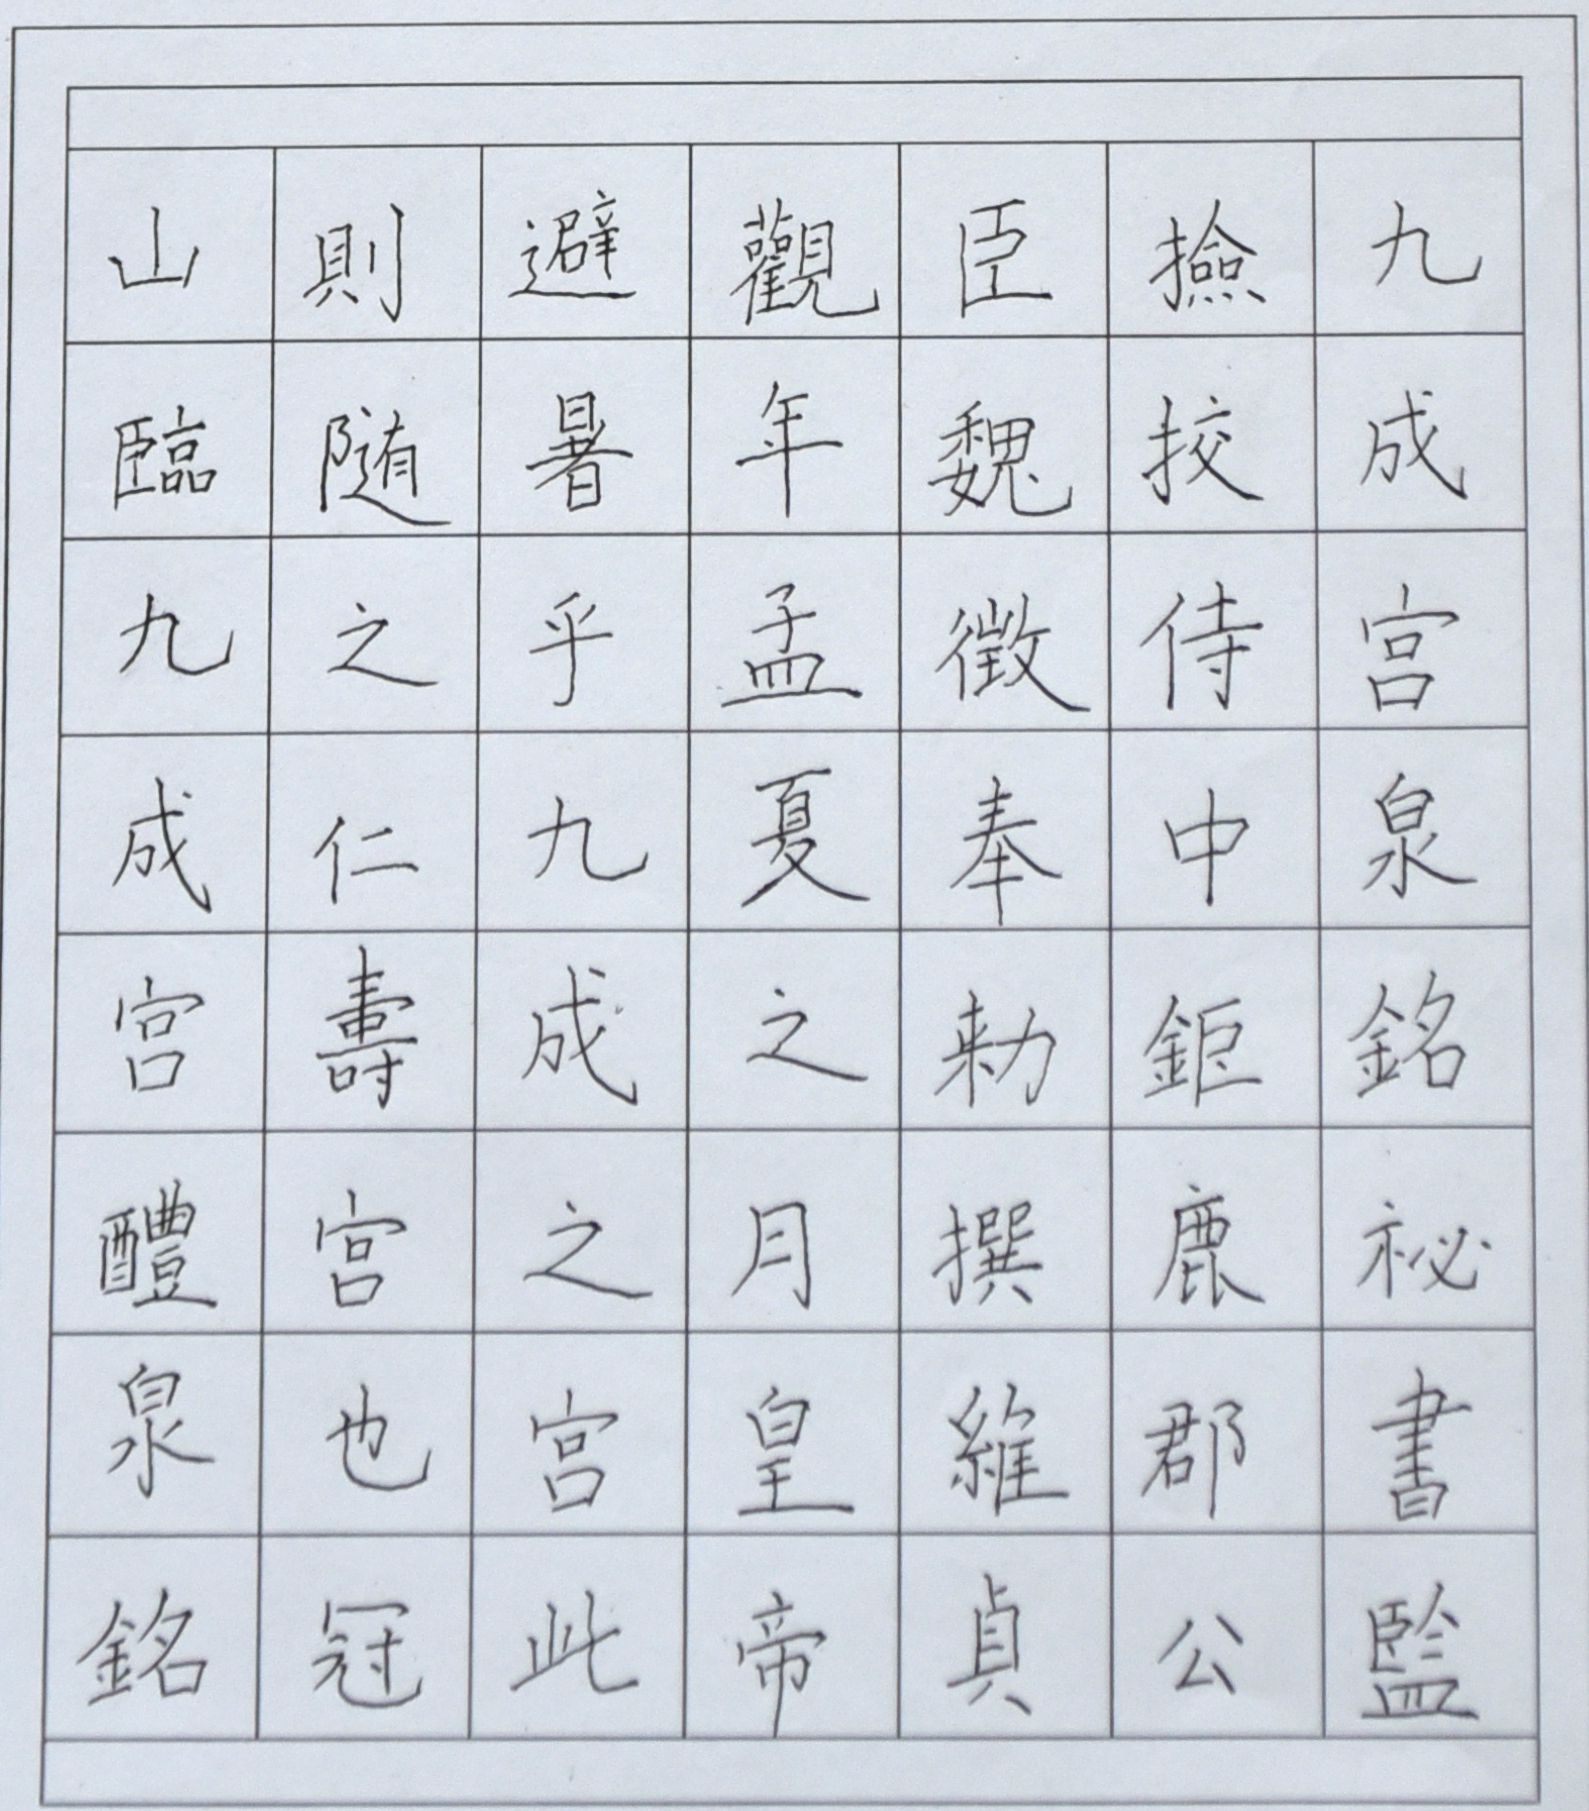 九成宫泉銘祕書監
撿挍侍中鉅鹿郡公
臣魏徵奉勑撰維貞
觀年孟夏之月皇帝
避暑乎九成之宫此
則随之仁壽宫也冠
山臨九成宫醴泉銘